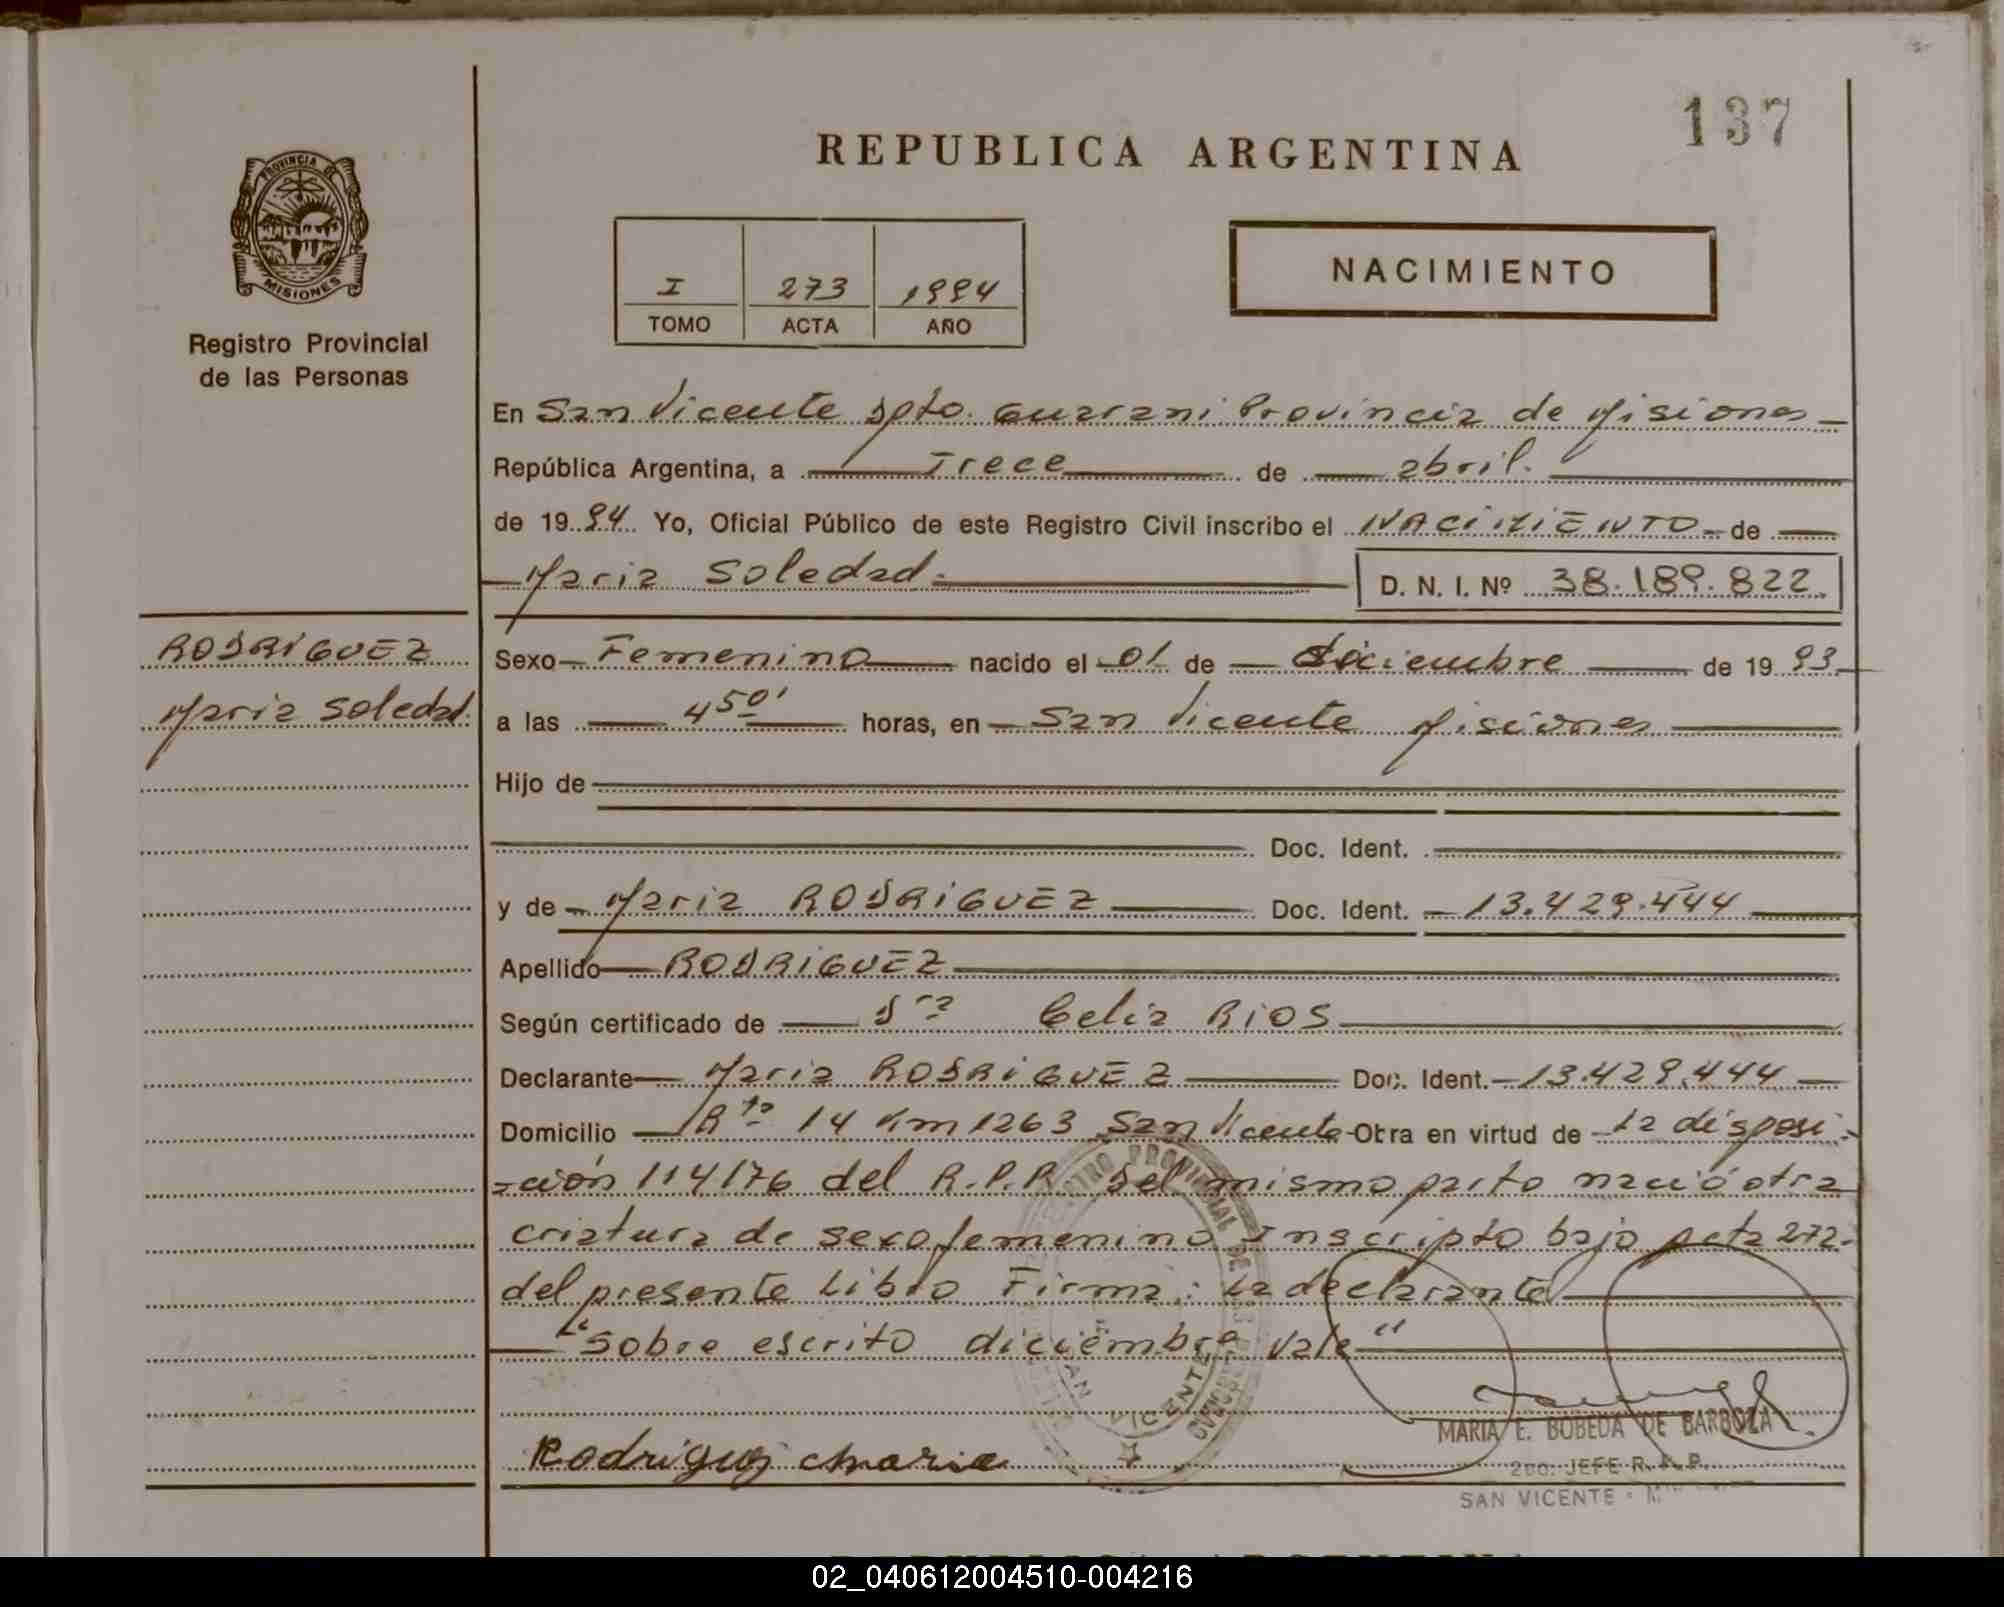 137
REPUBLICA ARGENTINA
PROVINCIA DE
MISIONES
Registro Provincial
de las Personas
I 273 1994
TOMO ACTA AÑO
NACIMIENTO
En San Vicente Dpto. Guarani Provincia de Misiones
República Argentina, a Trece de abril.
de 1994 Yo, Oficial Público de este Registro Civil inscribo el NACIMIENTO de
Maria Soledad. D. N. I. Nº 38.189.822
RODRIGUEZ
Maria Soledad.
Sexo Femenino nacido el 01 de diciembre de 1993
a las 4 50' horas, en San Vicente Misiones
Hijo de
Doc. Ident.
y de Maria RODRIGUEZ Doc. Ident. 13.429.444
Apellido RODRIGUEZ
Según certificado de Dra Celia RIOS
Declarante Maria RODRIGUEZ Doc. Ident. 13.429.444
Domicilio Rta 14 Km 1263 San Vicente Otra en virtud de la disposi-
-ción 114/76 del R.P.P. Del mismo parto nació otra
criatura de sexo femenino Inscripto bajo acta 272-
del presente Libro Firma: La declarante
"Sobre escrito diciembre Vale"
REGISTRO PROVINCIAL DE
SAN VICENTE
MARIA E. BOBEDA DE BARBOZA
2do. JEFE R. P. P.
SAN VICENTE - M
Rodriguez Maria
02_040612004510-004216